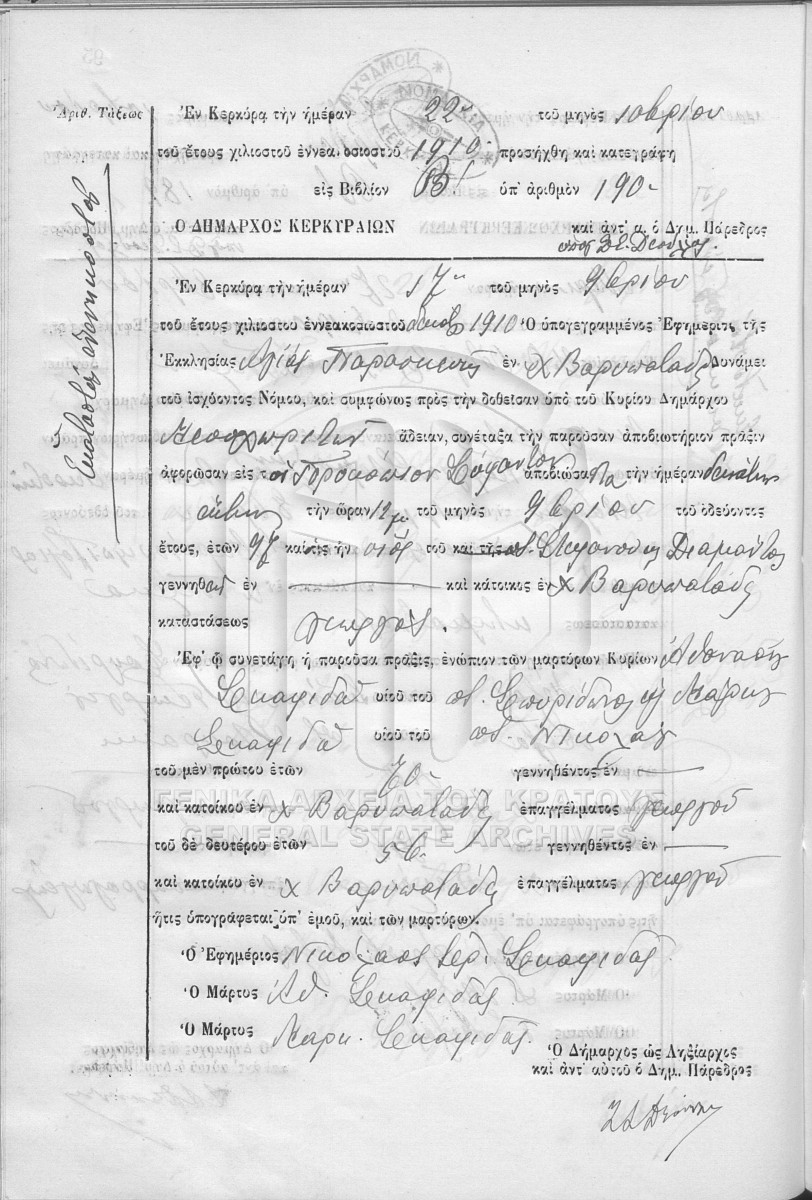 Ἀριθ. Τάξεως
Ἑκατοστὸς ἐνενηκοστὸς
Ἐν Κερκύρᾳ τὴν ἡμέραν 22αν τοῦ μηνὸς 10βρίου
τοῦ ἔτους χιλιοστοῦ ἐννεα οσιοστοῦ 1910 προσήχθη καὶ κατεγράφη
εἰς Βιβλίον Β ὑπ' ἀριθμὸν 190
Ο ΔΗΜΑΡΧΟΣ ΚΕΡΚΥΡΑΙΩΝ καὶ ἀντ' α. ὁ Δημ. Πάρεδρος
Ἐν Κερκύρᾳ τὴν ἡμέραν 17ην τοῦ μηνὸς 9βρίου
τοῦ ἔτους χιλιοστοῦ ἐννεακοσιοστοῦ 1910 Ὁ ὑπογεγραμμένος Ἐφημέριος τῆς
Ἐκκλησίας Ἁγίας Παρασκευῆς ἐν χ Βαρυπατάδες Δυνάμει
τοῦ ἰσχύοντος Νόμου, καὶ συμφώνως πρὸς τὴν δοθεῖσαν ὑπὸ τοῦ Κυρίου Δημάρχου
Μεσοχωριτῶν ἄδειαν, συνέταξα τὴν παροῦσαν ἀποβιωτήριον πρᾶξιν
ἀφορῶσαν εἰς τὸν Προκόπιον ἀποβιώσαντα τὴν ἡμέραν δεκάτην
ἕκτην τὴν ὥραν 12 μμ τοῦ μηνὸς 9βρίου τοῦ ὁδεύοντος
ἔτους, ἐτῶν 97 καὶ τις ἦν υἱὸς τοῦ καὶ τῆς ποτ. Στεφάνου καὶ Διαμάντως
γεννηθεὶς ἐν — καὶ κάτοικος ἐν χ Βαρυπατάδες
καταστάσεως γεωργός.
Ἐφ' ᾧ συνετάγη ἡ παροῦσα πρᾶξις, ἐνώπιον τῶν μαρτύρων Κυρίων Ἀθανασίου
Σκαφιδᾶ υἱοῦ τοῦ ποτ. Σπυρίδωνος καὶ Μάρκου
Σκαφιδᾶ υἱοῦ τοῦ ποτ. Νικολάου
τοῦ μὲν πρώτου ἐτῶν 70 γεννηθέντος ἐν —
καὶ κατοίκου ἐν χ Βαρυπατάδες ἐπαγγέλματος γεωργοῦ
τοῦ δὲ δευτέρου ἐτῶν 56 γεννηθέντος ἐν —
καὶ κατοίκου ἐν χ Βαρυπατάδες ἐπαγγέλματος γεωργοῦ
ἥτις ὑπογράφεται ὑπ' ἐμοῦ, καὶ τῶν μαρτύρων.
Ὁ Ἐφημέριος Νικόλαος ἱερ. Σκαφιδᾶς
Ὁ Μάρτυς Ἀθ. Σκαφιδᾶς
Ὁ Μάρτυς Μάρκ. Σκαφιδᾶς.
Ὁ Δήμαρχος ὡς Ληξίαρχος
καὶ ἀντ' αὐτοῦ ὁ Δημ. Πάρεδρος
ΓΕΝΙΚΑ ΑΡΧΕΙΑ ΤΟΥ ΚΡΑΤΟΥΣ
GENERAL STATE ARCHIVES